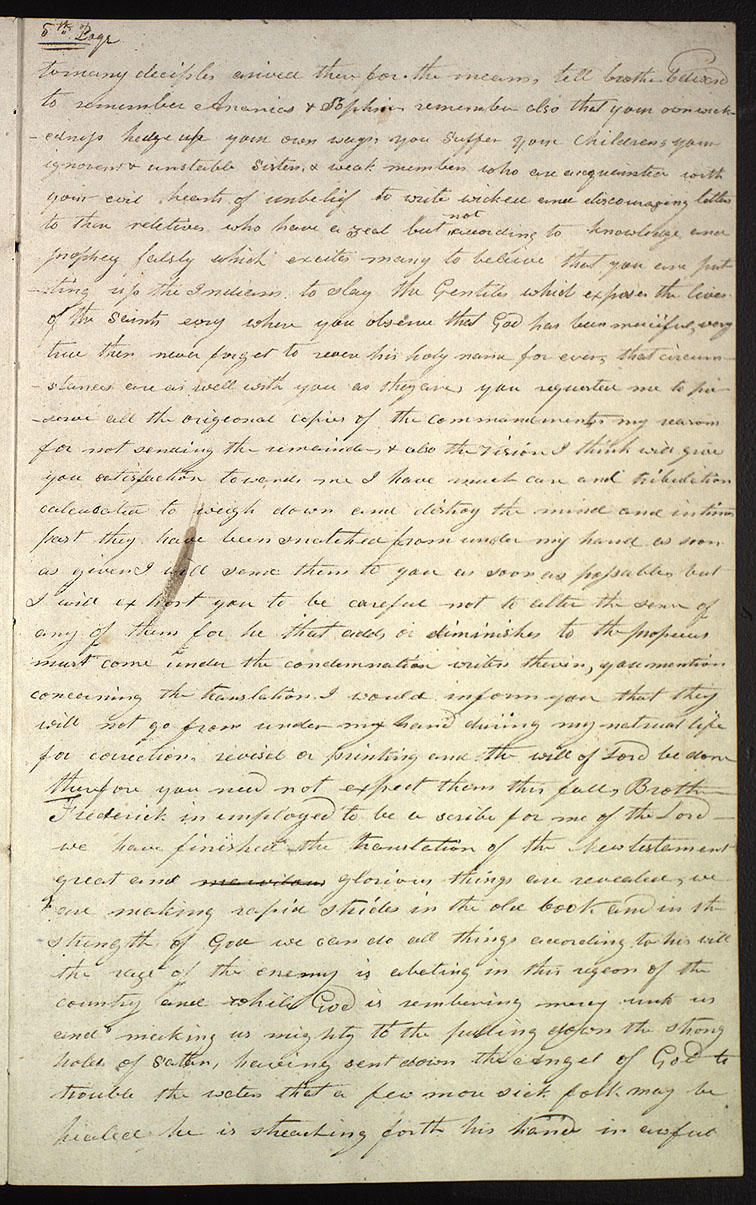 5th. Page
to many deciples arived there for the means, tell brother Edward
to remember Ananias & Sophira remember also that your own wick-
-edness hedge up your own ways, you suffer your Children; your
ignorent & unstable Sisters & weak members who are acquainted with
your evil hearts of unbelief to write wicked and discouraging letters
to there reletives who have a zeal but not according to knowledge and
prophecy falsly which excites many to believe that you are put
-ting up the Indians to slay the Gentiles which exposes the lives
of the Saints evry where you observe that God has been merciful, very
true then never forget to revere his holy name for ever, that circum-
-stances are as well with you as they are, you requested me to pre-
-serve all the origeonal copies of the commandments my reasons
for not sending the remainder & also the vision I think will give
you satisfaction towards me I have much care and tribulation
calculated to weigh down and distroy the mind and in times
past they have been snatched from under my hand as soon
as given I will send them to you as soon as possable, but
I will exhort you to be careful not to alter the sense of
any of them for he that adds or diminishes to the prop[h]ecies
must come under the condemnation writen therein, you mention
concerning the translation I would inform you that they
will not go from under my hand during my natural life
for correction, revisal or printing and the will of Lord be done
therefore you need not expect them this fall, Brother
Frederick in employed to be a scribe for me of the Lord—
we have finished the translation of the New testament
great and marvilous glorious things are revealed, we
are making rapid strides in the old book and in the
strength of God we can do all things according to his will
the rage of the enemy is abateing in this regeon of the
country and while God is rembering mercy unto us
and making us mighty to the pulling down the strong
holds of Satan, having sent down the Angel of God to
trouble the waters that a few more sick folk may be
healed he is streaching forth his hand in awful